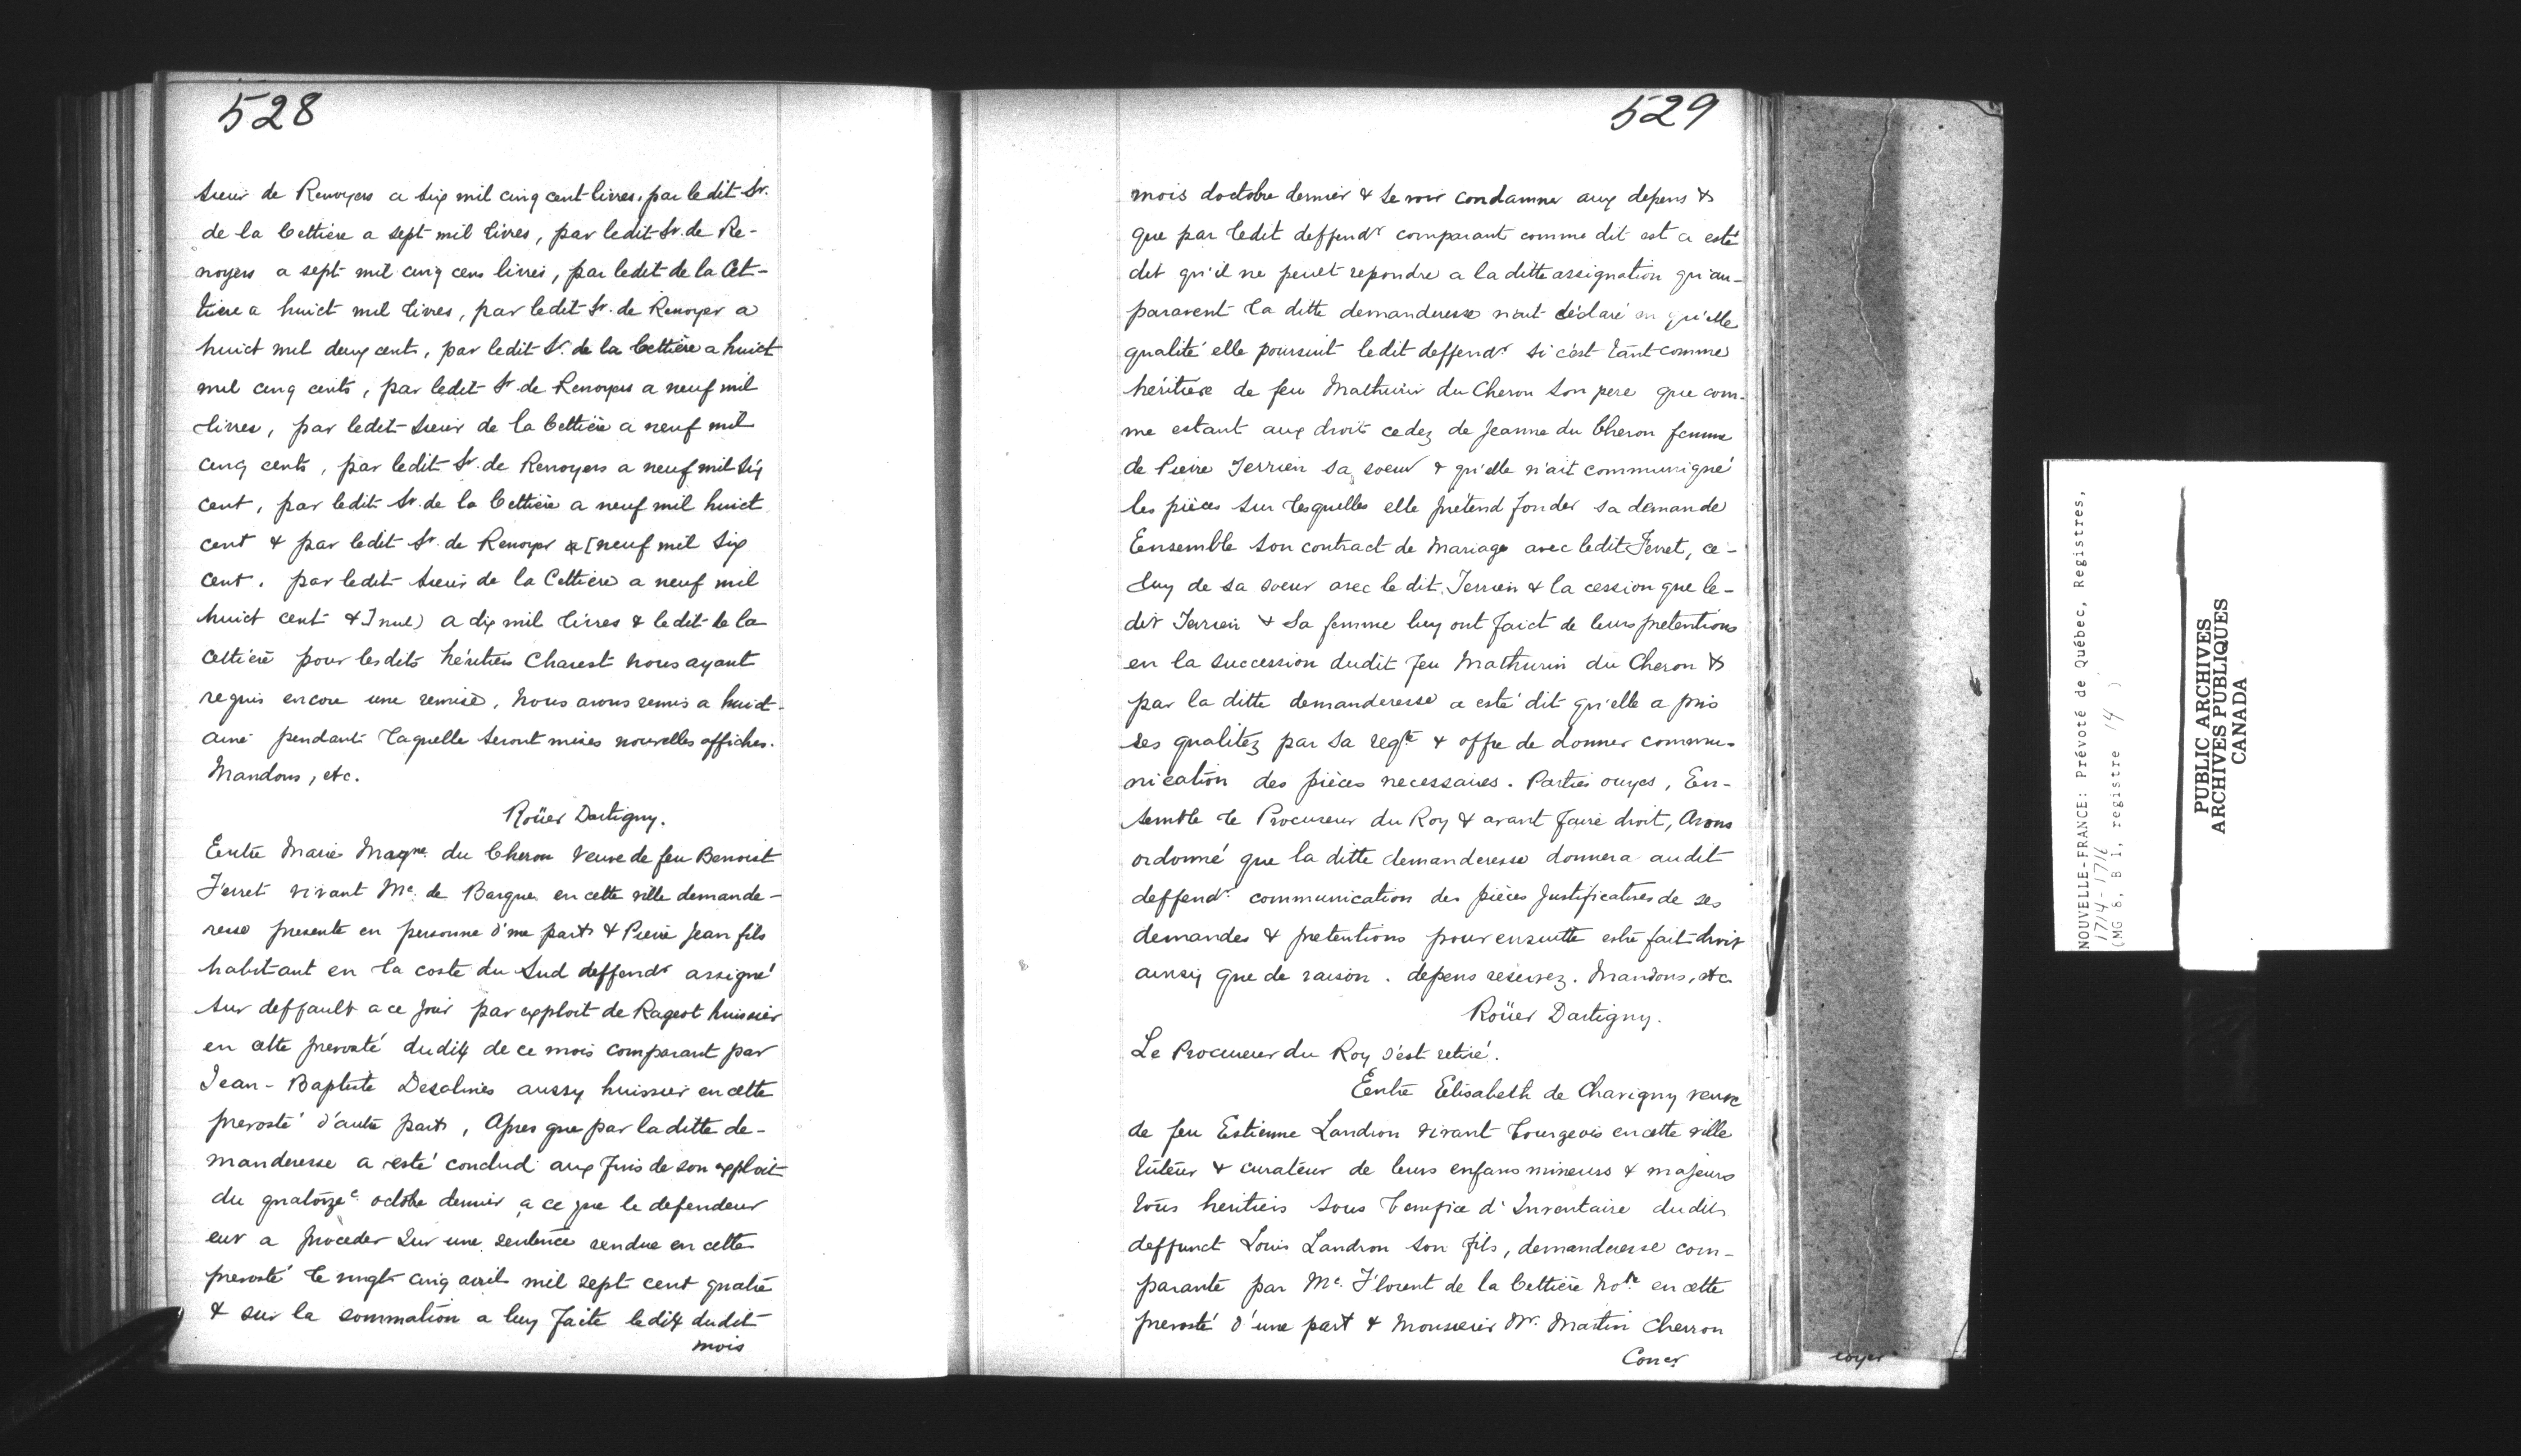 528
sieur de Renoyers a six mil cinq cent livres, par ledit Sr.
de la Cettiere a sept mil livres, par ledit Sr. de Re-
noyers a sept mil cinq cens livres, par ledit de la Cet-
tiere a huict mil livres, par ledit Sr. de Renoyer a
huict mil deux cents, par ledit Sr. de la Cettière a huict
mil cinq cents, par ledit Sr. de Renoyers a neuf mil
livres, par ledit sieur de la Cettière a neuf mil
cinq cents, par ledit Sr. de Renoyers a neuf mil six
cent, par ledit Sr. de la Cettière a neuf mil huict
cent & par ledit Sr. de Renoyer a [neuf mil six
cent, par ledit sieur de la Cettière a neuf mil
huict cent &] nul) a dix mil livres & ledit de la
Cettière pour lesdits héritiers Charest nous ayant
requis encore une remise, nous avons remis a huict-
aine pendant laquelle seront mises nouvelles affiches.
Mandons, etc.
Roüer Dartigny.
Entre Marie Magne. du Cheron veuve de feu Benoist
Ferret vivant Me. de Barque en cette ville demande-
resse presente en personne d'une part & Pierre Jean fils
habitant en la coste du Sud deffendr assigné
sur deffault a ce jour par exploit de Rageot huissier
en cette prevosté dudix de ce mois comparant par
Jean-Baptiste Desalines aussy huissier en cette
prevosté d'autre part, Apres que par la ditte de-
manderesse a esté conclud aux fins de son exploit
du quatorze e. octobre dernier a ce que le defendeur
eut a proceder sur une sentence rendue en cette
prevosté le vingt cinq avril mil sept cent quatre
& sur la sommation a luy faite ledix dudit
mois
529
mois doctobre dernier & se voir condamner aux depens &
que par ledit deffendr comparant comme dit est a esté
dit qu'il ne peult repondre a la ditte assignation qu'au-
paravent la ditte demanderesse n'ait déclaré en qu'elle
qualité elle poursuit ledit deffendr. si c'est tant comme
héritière de feu Mathurin du Cheron son pere que com-
me estant aux droits cedez de Jeanne du Cheron femme
de Pierre Terrien sa soeur & qu'elle n'ait communiqué
les pièces sur lesquelles elle prétend fonder sa demande
Ensemble son contract de Mariage avec ledit Ferret, ce-
luy de sa soeur avec le dit Terrien & la cession que le-
dit Terrien & sa femme luy ont faict de leurs pretentions
en la succession dudit feu Mathurin du Cheron &
par la ditte demanderesse a esté dit qu'elle a pris
ses qualitez par sa reqte & offre de donner commu-
nication des pièces necessaires. Parties ouyes, En-
semble le Procureur du Roy & avant faire droit, Avons
ordonné que la ditte demanderesse donnera audit
deffendr. communication des pièces justificatives de ses
demandes & pretentions pour ensuitte estre fait droit
ainsy que de raison. depens reservez. Mandons, etc.
Roüer Dartigny.
Le Procureur du Roy s'est retiré.
Entre Elisabeth de Chavigny veuve
de feu Estienne Landron vivant bourgeois en cette ville
tuteur & curateur de leurs enfans mineurs & majeurs
tous heritiers sous benefice d'Inventaire dudit
deffunct Louis Landron son fils, demanderesse com-
parante par Me. Florent de la Cettière Nore. en cette
prevosté d'une part & Monsieur Mr. Martin Cherron
Conˢᵉʳ
NOUVELLE-FRANCE: Prévoté de Québec, Registres,
1714-1716
(MG 8, B 1, registre 14 )
PUBLIC ARCHIVES
ARCHIVES PUBLIQUES
CANADA